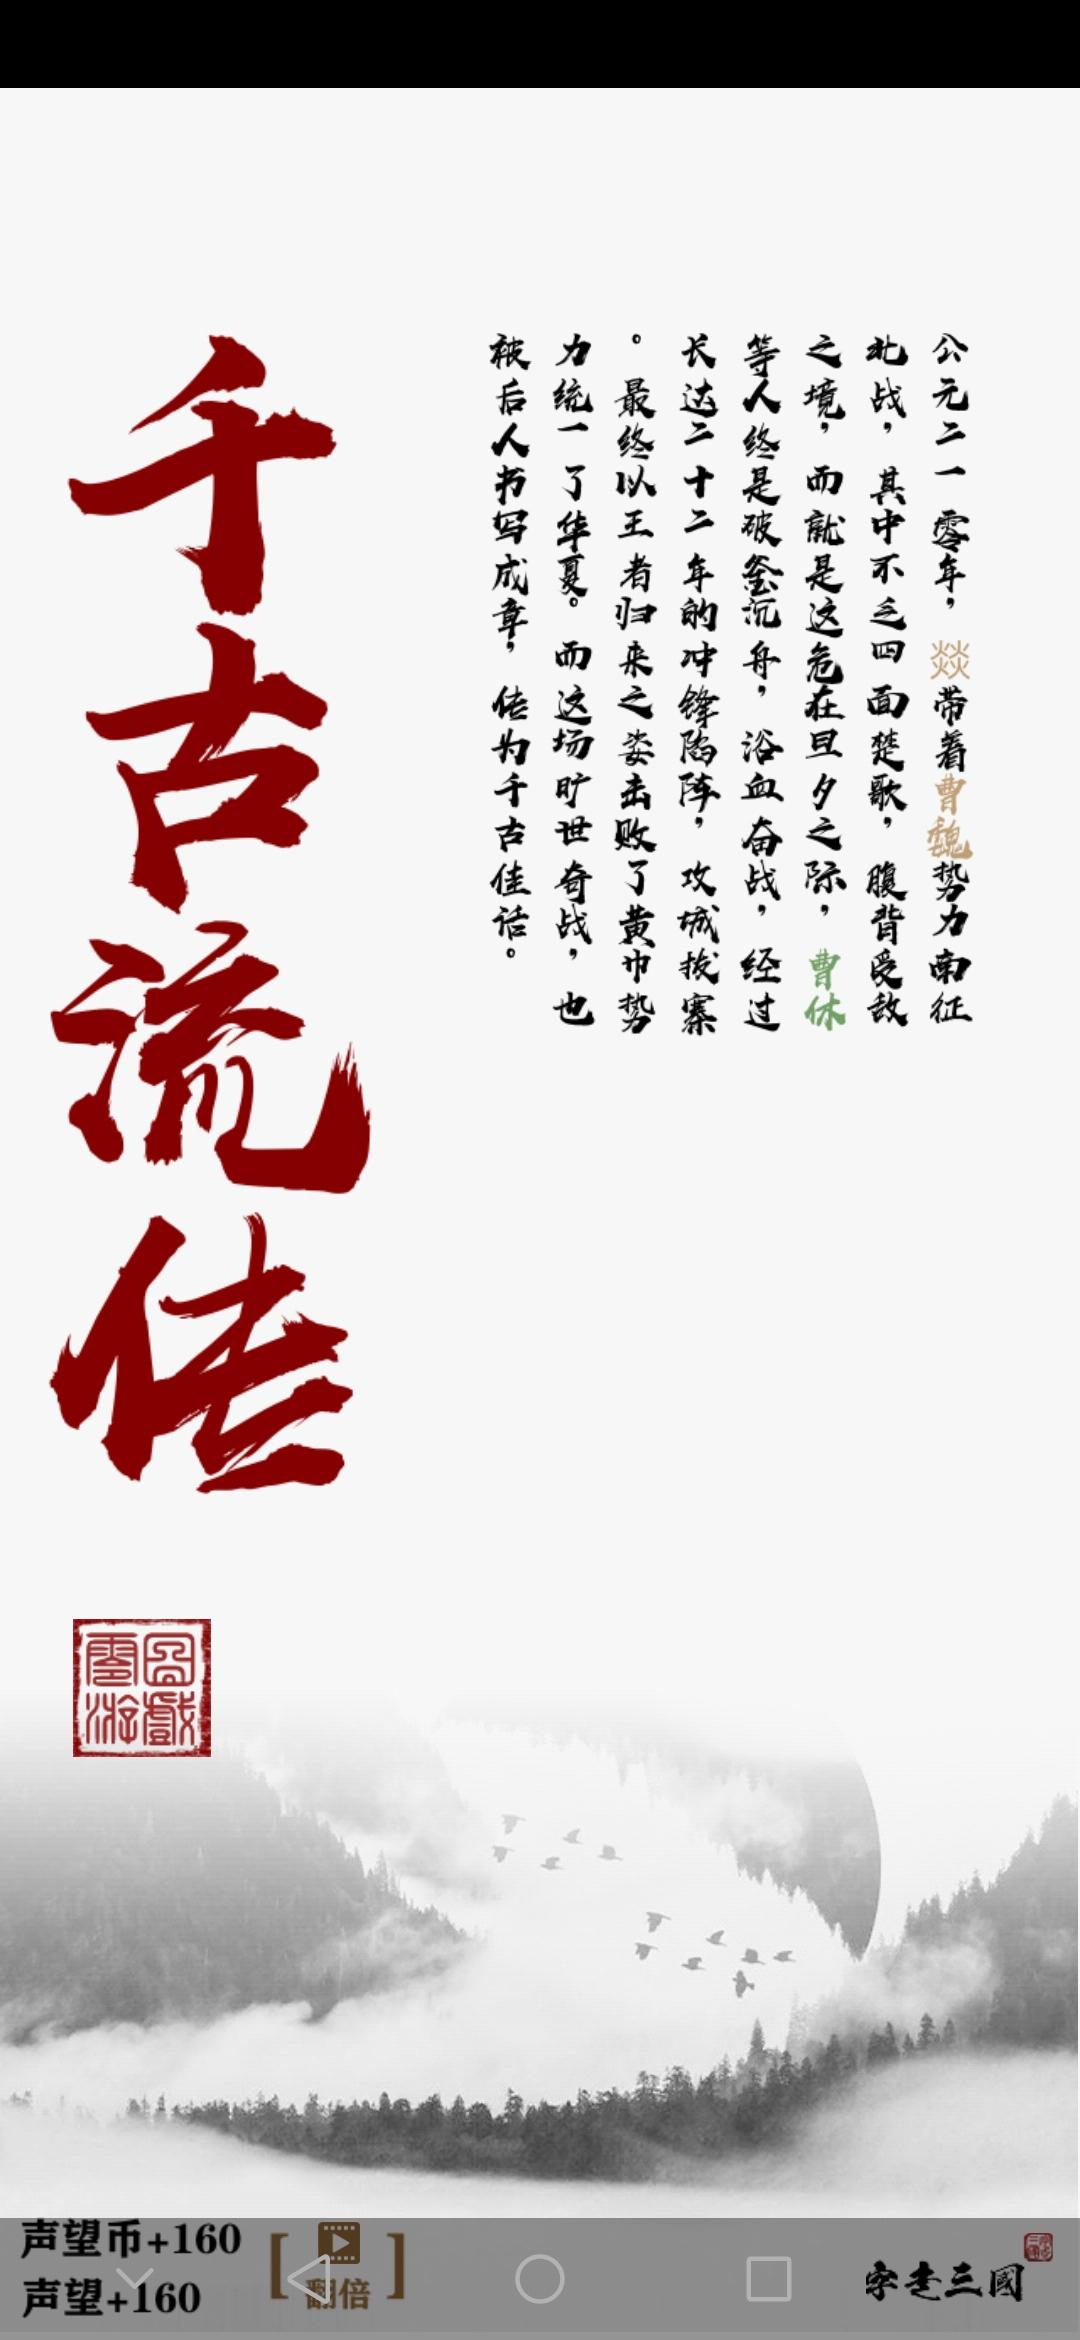 公元二一零年，燚带着曹魏势力南征
北战，其中不乏四面楚歌，腹背受敌
之境，而就是这危在旦夕之际，曹休
等人终是破釜沉舟，浴血奋战，经过
长达二十二年的冲锋陷阵，攻城拔寨
。最终以王者归来之姿击败了黄巾势
力统一了华夏。而这场旷世奇战，也
被后人书写成章，传为千古佳话。
千古流传
声望币+160
声望+160
[翻倍]
字走三國